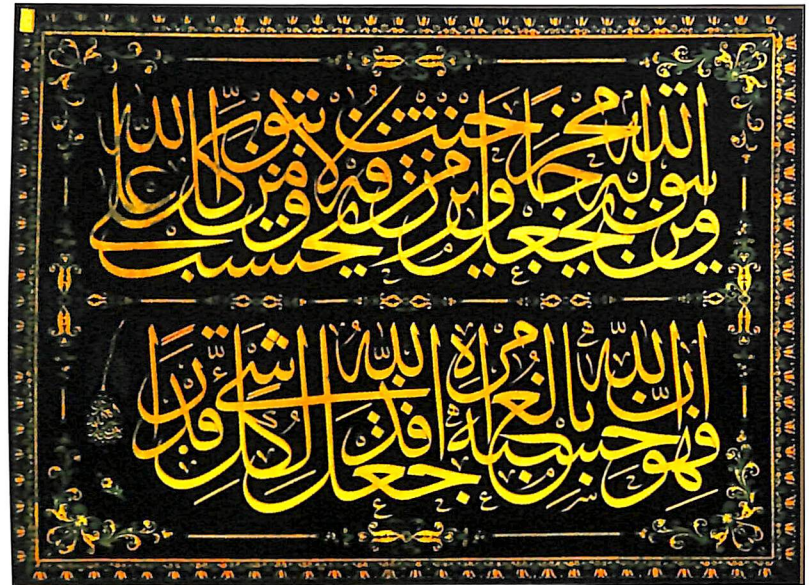 ومن يتق الله يجعل له مخرجا ويرزقه من حيث لا يحتسب ومن يتوكل على الله
فهو حسبه ان الله بالغ امره قد جعل الله لكل شئ قدرا